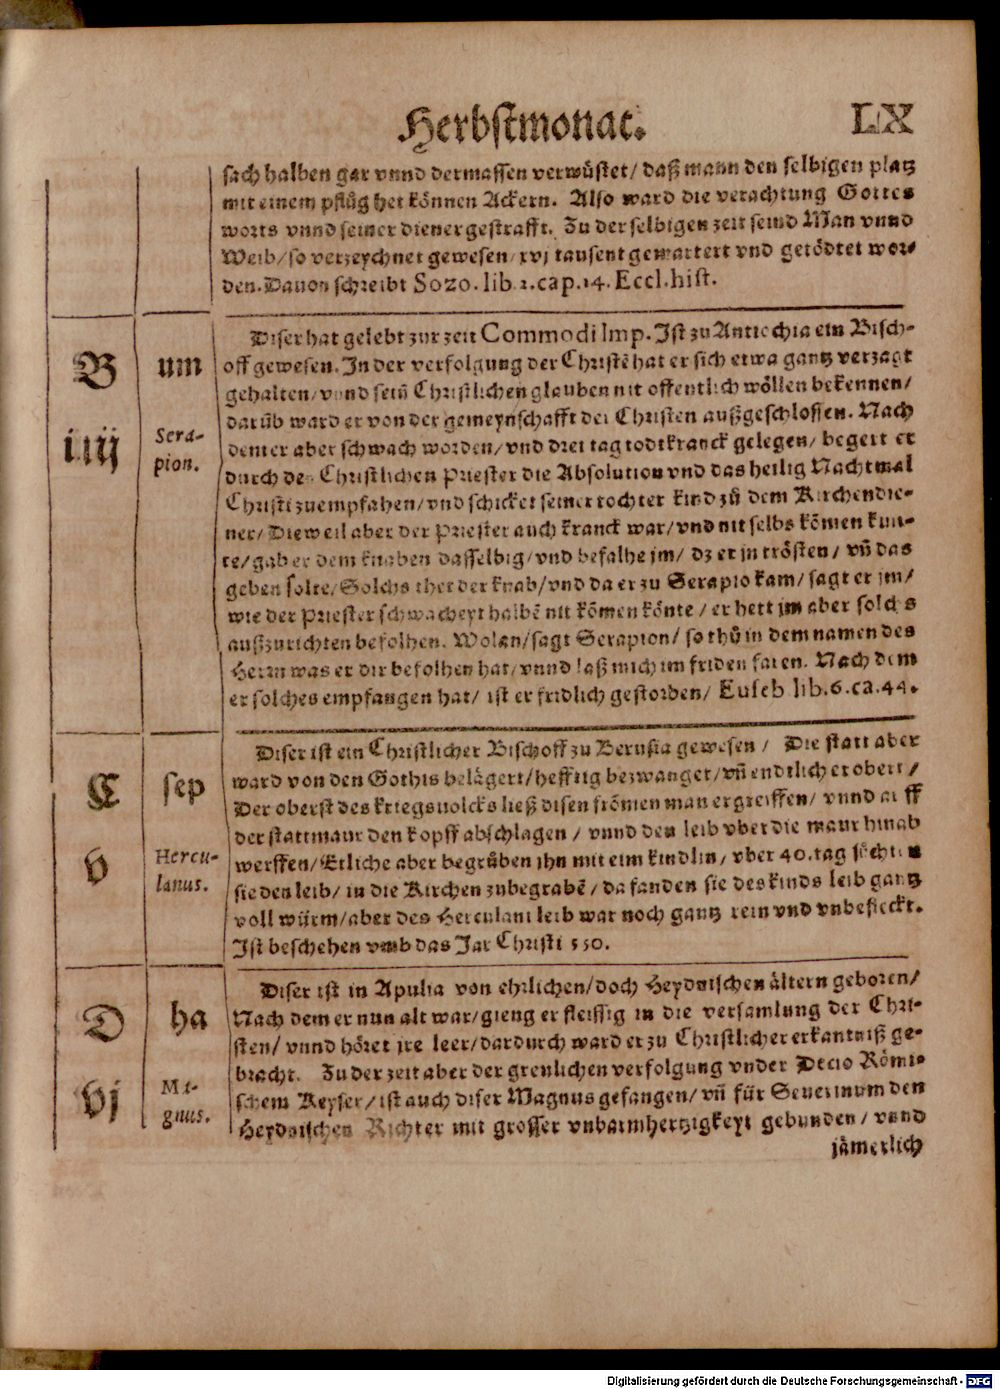 Herbstmonat. LX
sach halben gar vnnd dermassen verwüstet/ daß mann den selbigen platz
mit einem pflůg het können Ackern. Also ward die verachtung Gottes
worts vnnd seiner diener gestrafft. Zu der selbigen zeit seind Man vnnd
Weib/ so verzeychnet gewesen/ xvj tausent gemartert vnd getödtet wor-
den. Dauon schreibt Sozo. lib. 2. cap. 14. Eccl. hist.
B um
iiij Sera-
pion.
Diser hat gelebt zur zeit Commodi Imp. Ist zu Antiochia ein Bisch-
off gewesen. In der verfolgung der Christē hat er sich etwa gantz verzagt
gehalten/ vnnd sein Christlichen glauben nit offentlich wöllen bekennen/
darūb ward er von der gemeynschafft der Christen außgeschlossen. Nach
dem er aber schwach worden/ vnd drei tag todtkranck gelegen/ begert er
durch den Christlichen Priester die Absolution vnd das heilig Nachtmal
Christi zuempfahen/ vnd schicket seiner tochter kind zů dem Kirchendie-
ner/ Dieweil aber der Priester auch kranck war/ vnd nit selbs kōmen kun-
te/ gab er dem knaben dasselbig/ vnd befalhe jm/ dz er jn trösten/ vñ das
geben solte/ Solchs thet der knab/ vnd da er zu Serapio kam/ sagt er jm/
wie der Priester schwacheyt halbē nit kōmen könte/ er hett jm aber solchs
außzurichten befolhen. Wolan/ sagt Serapion/ so thů in dem namen des
Herrn was er dir befolhen hat/ vnnd laß mich im friden faren. Nach dem
er solches empfangen hat/ ist er fridlich gestorben/ Euseb. lib. 6. ca. 44.
C sep
v Hercu-
lanus.
Diser ist ein Christlicher Bischoff zu Berusia gewesen/ Die statt aber
ward von den Gothis belägert/ hefftig bezwanget/ vñ endtlich erobert/
Der oberst des kriegsuolcks ließ disen frōmen man ergreiffen/ vnnd auff
der stattmaur den kopff abschlagen/ vnnd den leib vber die maur hinab
werffen/ Etliche aber begrůben ihn mit eim kindlin/ vber 40. tag sůchten
sie den leib/ in die Kirchen zubegrabē/ da fanden sie des kinds leib gantz
voll würm/ aber des Herculani leib war noch gantz rein vnd vnbefleckt.
Ist beschehen vmb das Jar Christi 550.
D ha
vj Ma-
gnus.
Diser ist in Apulia von ehrlichen/ doch Heydnischen ältern geboren/
Nach dem er nun alt war/ gieng er fleissig in die versamlung der Chri-
sten/ vnnd höret jre leer/ dardurch ward er zu Christlicher erkantniß ge-
bracht. Zu der zeit aber der grewlichen verfolgung vnder Decio Römi-
schem Keyser/ ist auch diser Magnus gefangen/ vñ für Seuerinum den
Heydnischen Richter mit grosser vnbarmhertzigkeyt gebunden/ vnnd
jämerlich
Digitalisierung gefördert durch die Deutsche Forschungsgemeinschaft - DFG